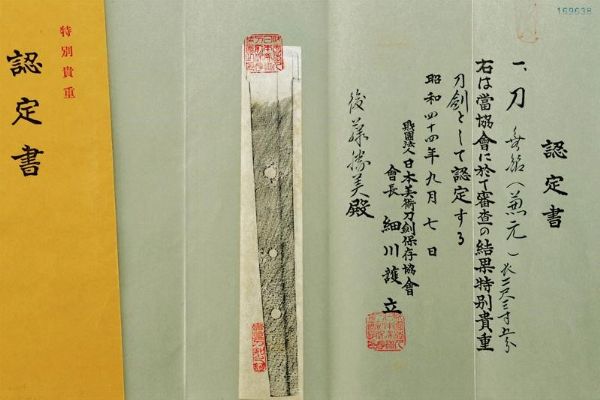 特別貴重
認定書
169638
認定書
一、刀 無銘(兼元)長二尺三寸五分
右は當協會に於て審査の結果特別貴重
刀劍として認定する
昭和四十四年九月七日
財團法人日本美術刀劍保存協會
會長 細川護立
後藤勝美殿